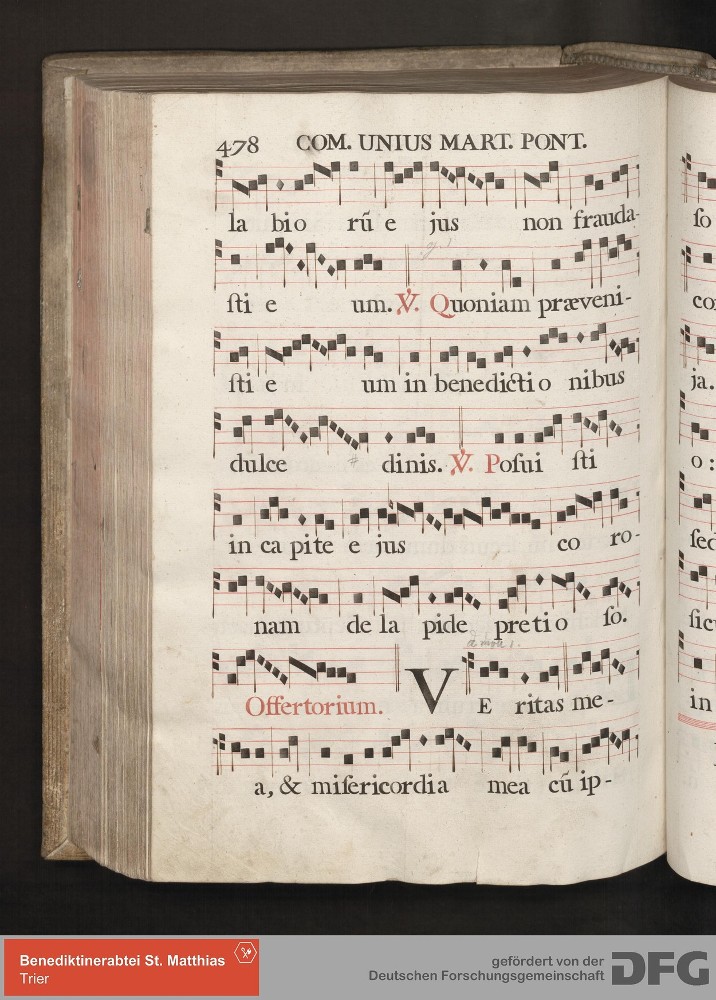 478 COM. UNIUS MART. PONT.
la bio rũ e jus non frauda-
ſti e um. ℣. Quoniam præveni-
ſti e um in benedicti o nibus
dulce dinis. ℣. Poſui ſti
in ca pite e jus co ro-
nam de la pide preti o ſo.
Offertorium. VE ritas me-
a, & miſericordi a mea cũ ip-
ſo
co
ja.
o :
ſed
ſicu
in
Benediktinerabtei St. Matthias
Trier
gefördert von der
Deutschen Forschungsgemeinschaft
DFG